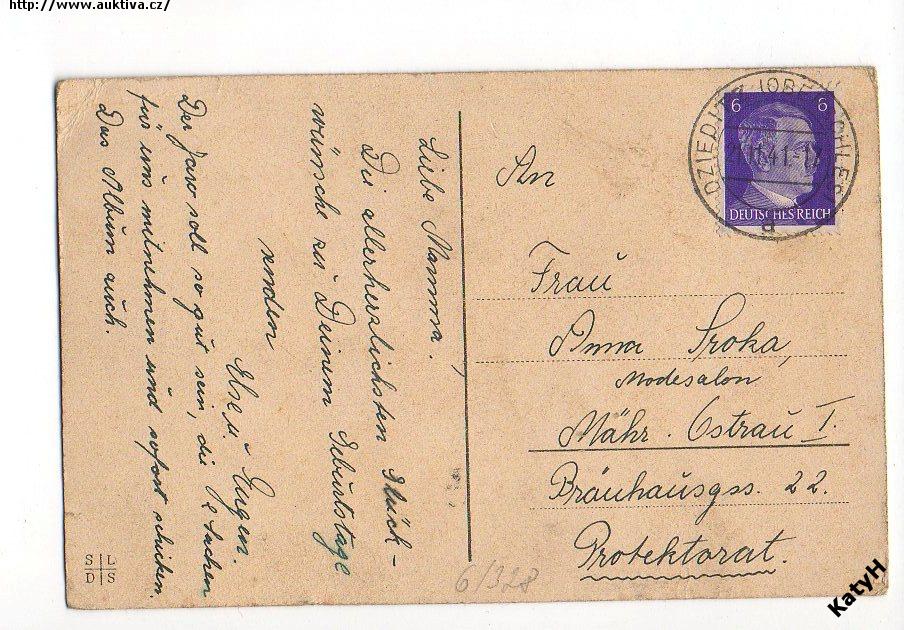 http://www.auktiva.cz/
Liebe Mamma,
Die allerherzlichsten Glück-
wünsche zu Deinem Geburtstage
senden
Else u. Eugen.
Der Jaro soll so gut sein, die 2 Sachen
für uns mitnehmen und sofort schicken.
Das Album auch.
S L
D S
An
Frau
Anna Sroka,
Modesalon
Mähr. Ostrau I.
Bräuhausgss. 22.
Protektorat.
6 6
DEUTSCHES REICH
DZIEDITZ
41
a
6/328
KatyH